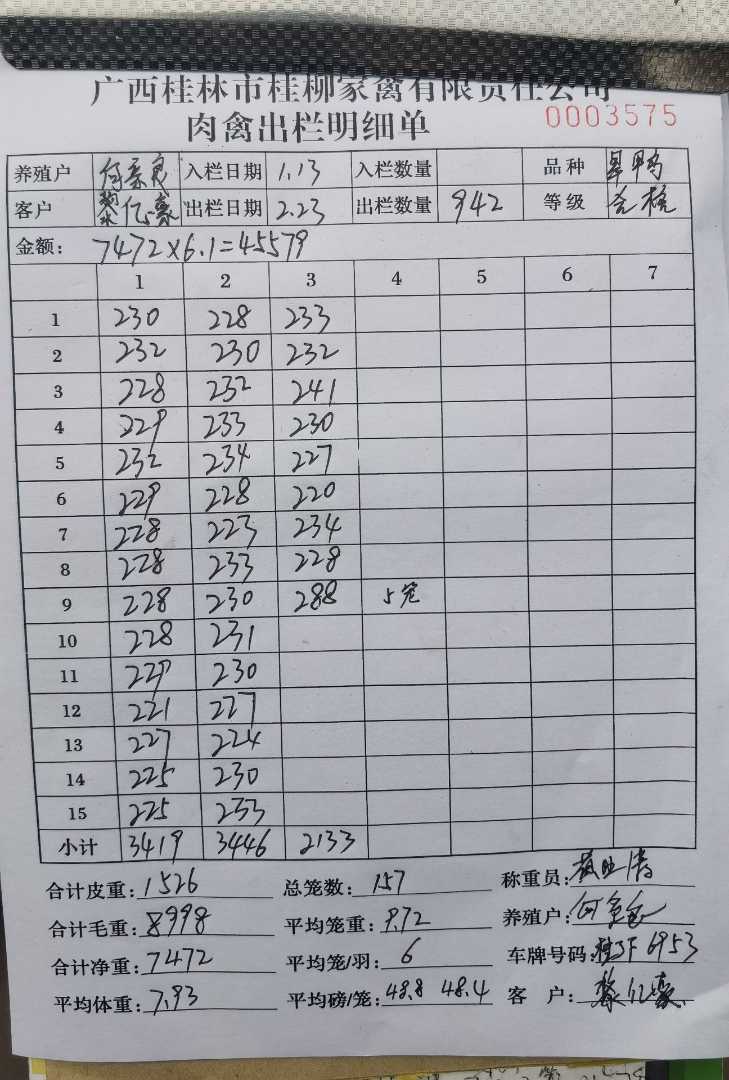 广西桂林市桂柳家禽有限责任公司
肉禽出栏明细单 0003575
养殖户 入栏日期 1.13 入栏数量 品种 鸭
客户 亿豪 出栏日期 2.23 出栏数量 942 等级 合格
金额: 7472×6.1=45579
1 2 3 4 5 6 7
1 230 228 233
2 232 230 232
3 228 232 241
4 229 233 230
5 232 234 227
6 229 228 220
7 228 223 234
8 228 233 228
9 228 230 288 5笼
10 228 231
11 229 230
12 221 227
13 227 224
14 225 230
15 225 233
小计 3419 3446 2133
合计皮重: 1526 总笼数: 157 称重员:
合计毛重: 8998 平均笼重: 9.72 养殖户: 何
合计净重: 7472 平均笼/羽: 6 车牌号码: 6953
平均体重: 7.93 平均磅/笼: 48.8 48.4 客户: 黎亿豪